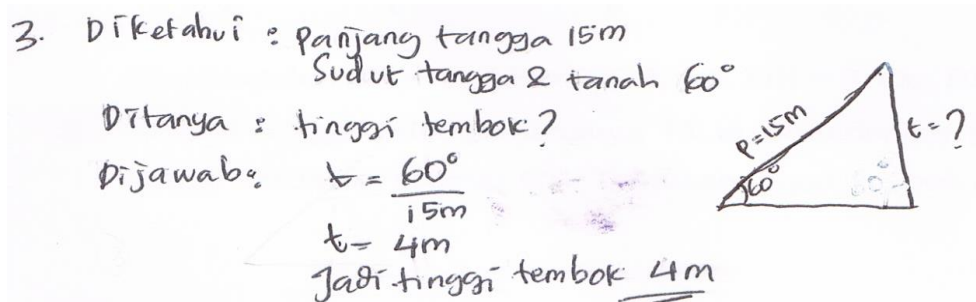 3. Diketahui : Panjang tangga 15m
Sudut tangga & tanah 60°
Ditanya : tinggi tembok?
Dijawab : t = 60°
15m
t = 4m
Jadi tinggi tembok 4m
P=15m
60°
t=?